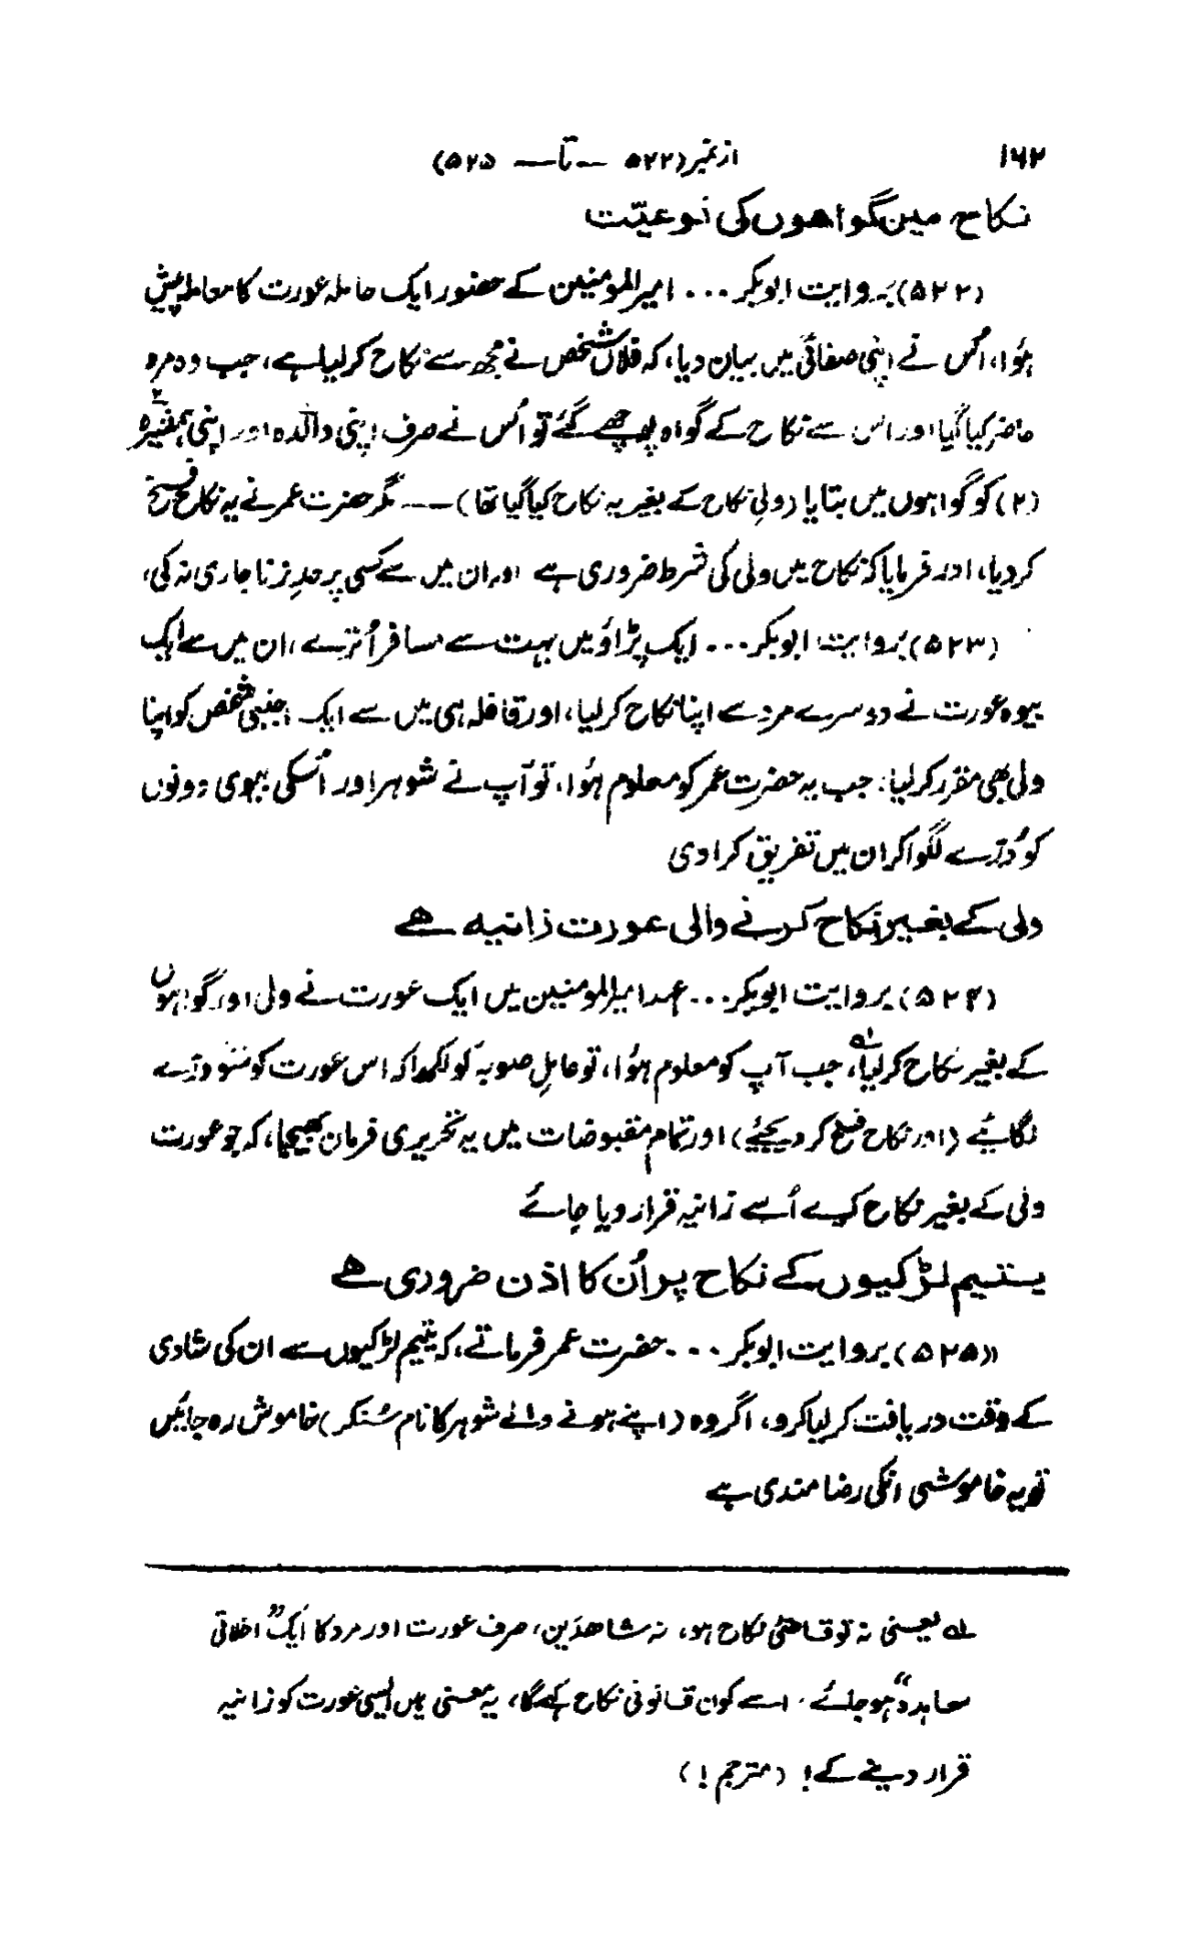 ۱۶۲ از نمبر (۵۲۲ — تا — ۵۲۵)
نکاح میں گواھوں کی نوعیّت
(۵۲۲) بہ روایت ابوبکر ... امیرالمومنین کے حضور ایک حاملہ عورت کا معاملہ پیش
ہُوا، اُس نے اپنی صفائی میں بیان دیا، کہ فلاں شخص نے مجھ سے نکاح کر لیا ہے، جب وہ مرد
حاضر کیا گیا اور اس سے نکاح کے گواہ پوچھے گئے تو اُس نے صرف اپنی والدہ اور اپنی ہمشیرہ
(۲) کو گواہوں میں بتایا (ولیِ نکاح کے بغیر یہ نکاح کیا گیا تھا) --- مگر حضرت عمر نے یہ نکاح فسخ
کر دیا، اور فرمایا کہ نکاح میں ولی کی شرط ضروری ہے اور ان میں سے کسی پر حدِ زنا جاری نہ کی،
(۵۲۳) بروایت ابوبکر ... ایک پڑاؤ میں بہت سے مسافر اُترے، ان میں سے ایک
بیوہ عورت نے دوسرے مرد سے اپنا نکاح کر لیا، اور قافلہ ہی میں سے ایک اجنبی شخص کو اپنا
ولی بھی مقرر کر لیا: جب یہ حضرت عمر کو معلوم ہُوا، تو آپ نے شوہر اور اُسکی بیوی دونوں
کو دُرّے لگوا کر ان میں تفریق کرا دی
ولی کے بغیر نکاح کرنے والی عورت زانیہ ھے
(۵۲۴) بروایت ابوبکر ... عہد امیرالمومنین میں ایک عورت نے ولی اور گواہوں
کے بغیر نکاح کر لیا لہ، جب آپ کو معلوم ہُوا، تو عاملِ صوبہ کو لکھا کہ اس عورت کو سَو دُرّے
لگائیے (اور نکاح فسخ کر دیجئے) اور تمام مقبوضات میں یہ تحریری فرمان بھیجا، کہ جو عورت
ولی کے بغیر نکاح کرے اُسے زانیہ قرار دیا جائے
یتیم لڑکیوں کے نکاح پر اُن کا اذن ضروری ھے
(۵۲۵) بروایت ابوبکر ... حضرت عمر فرماتے، کہ یتیم لڑکیوں سے ان کی شادی
کے وقت دریافت کر لیا کرو، اگر وہ (اپنے ہونے والے شوہر کا نام سُنکر) خاموش رہ جائیں
تو یہ خاموشی انکی رضامندی ہے
لہ یعنی نہ تو قاضیٔ نکاح ہو، نہ شاھدَین، صرف عورت اور مرد کا ایک "اخلاقی
معاہدہ" ہو جائے، اسے کون قانونی نکاح کہے گا، یہ معنی ہیں ایسی عورت کو زانیہ
قرار دینے کے! (مترجم!)